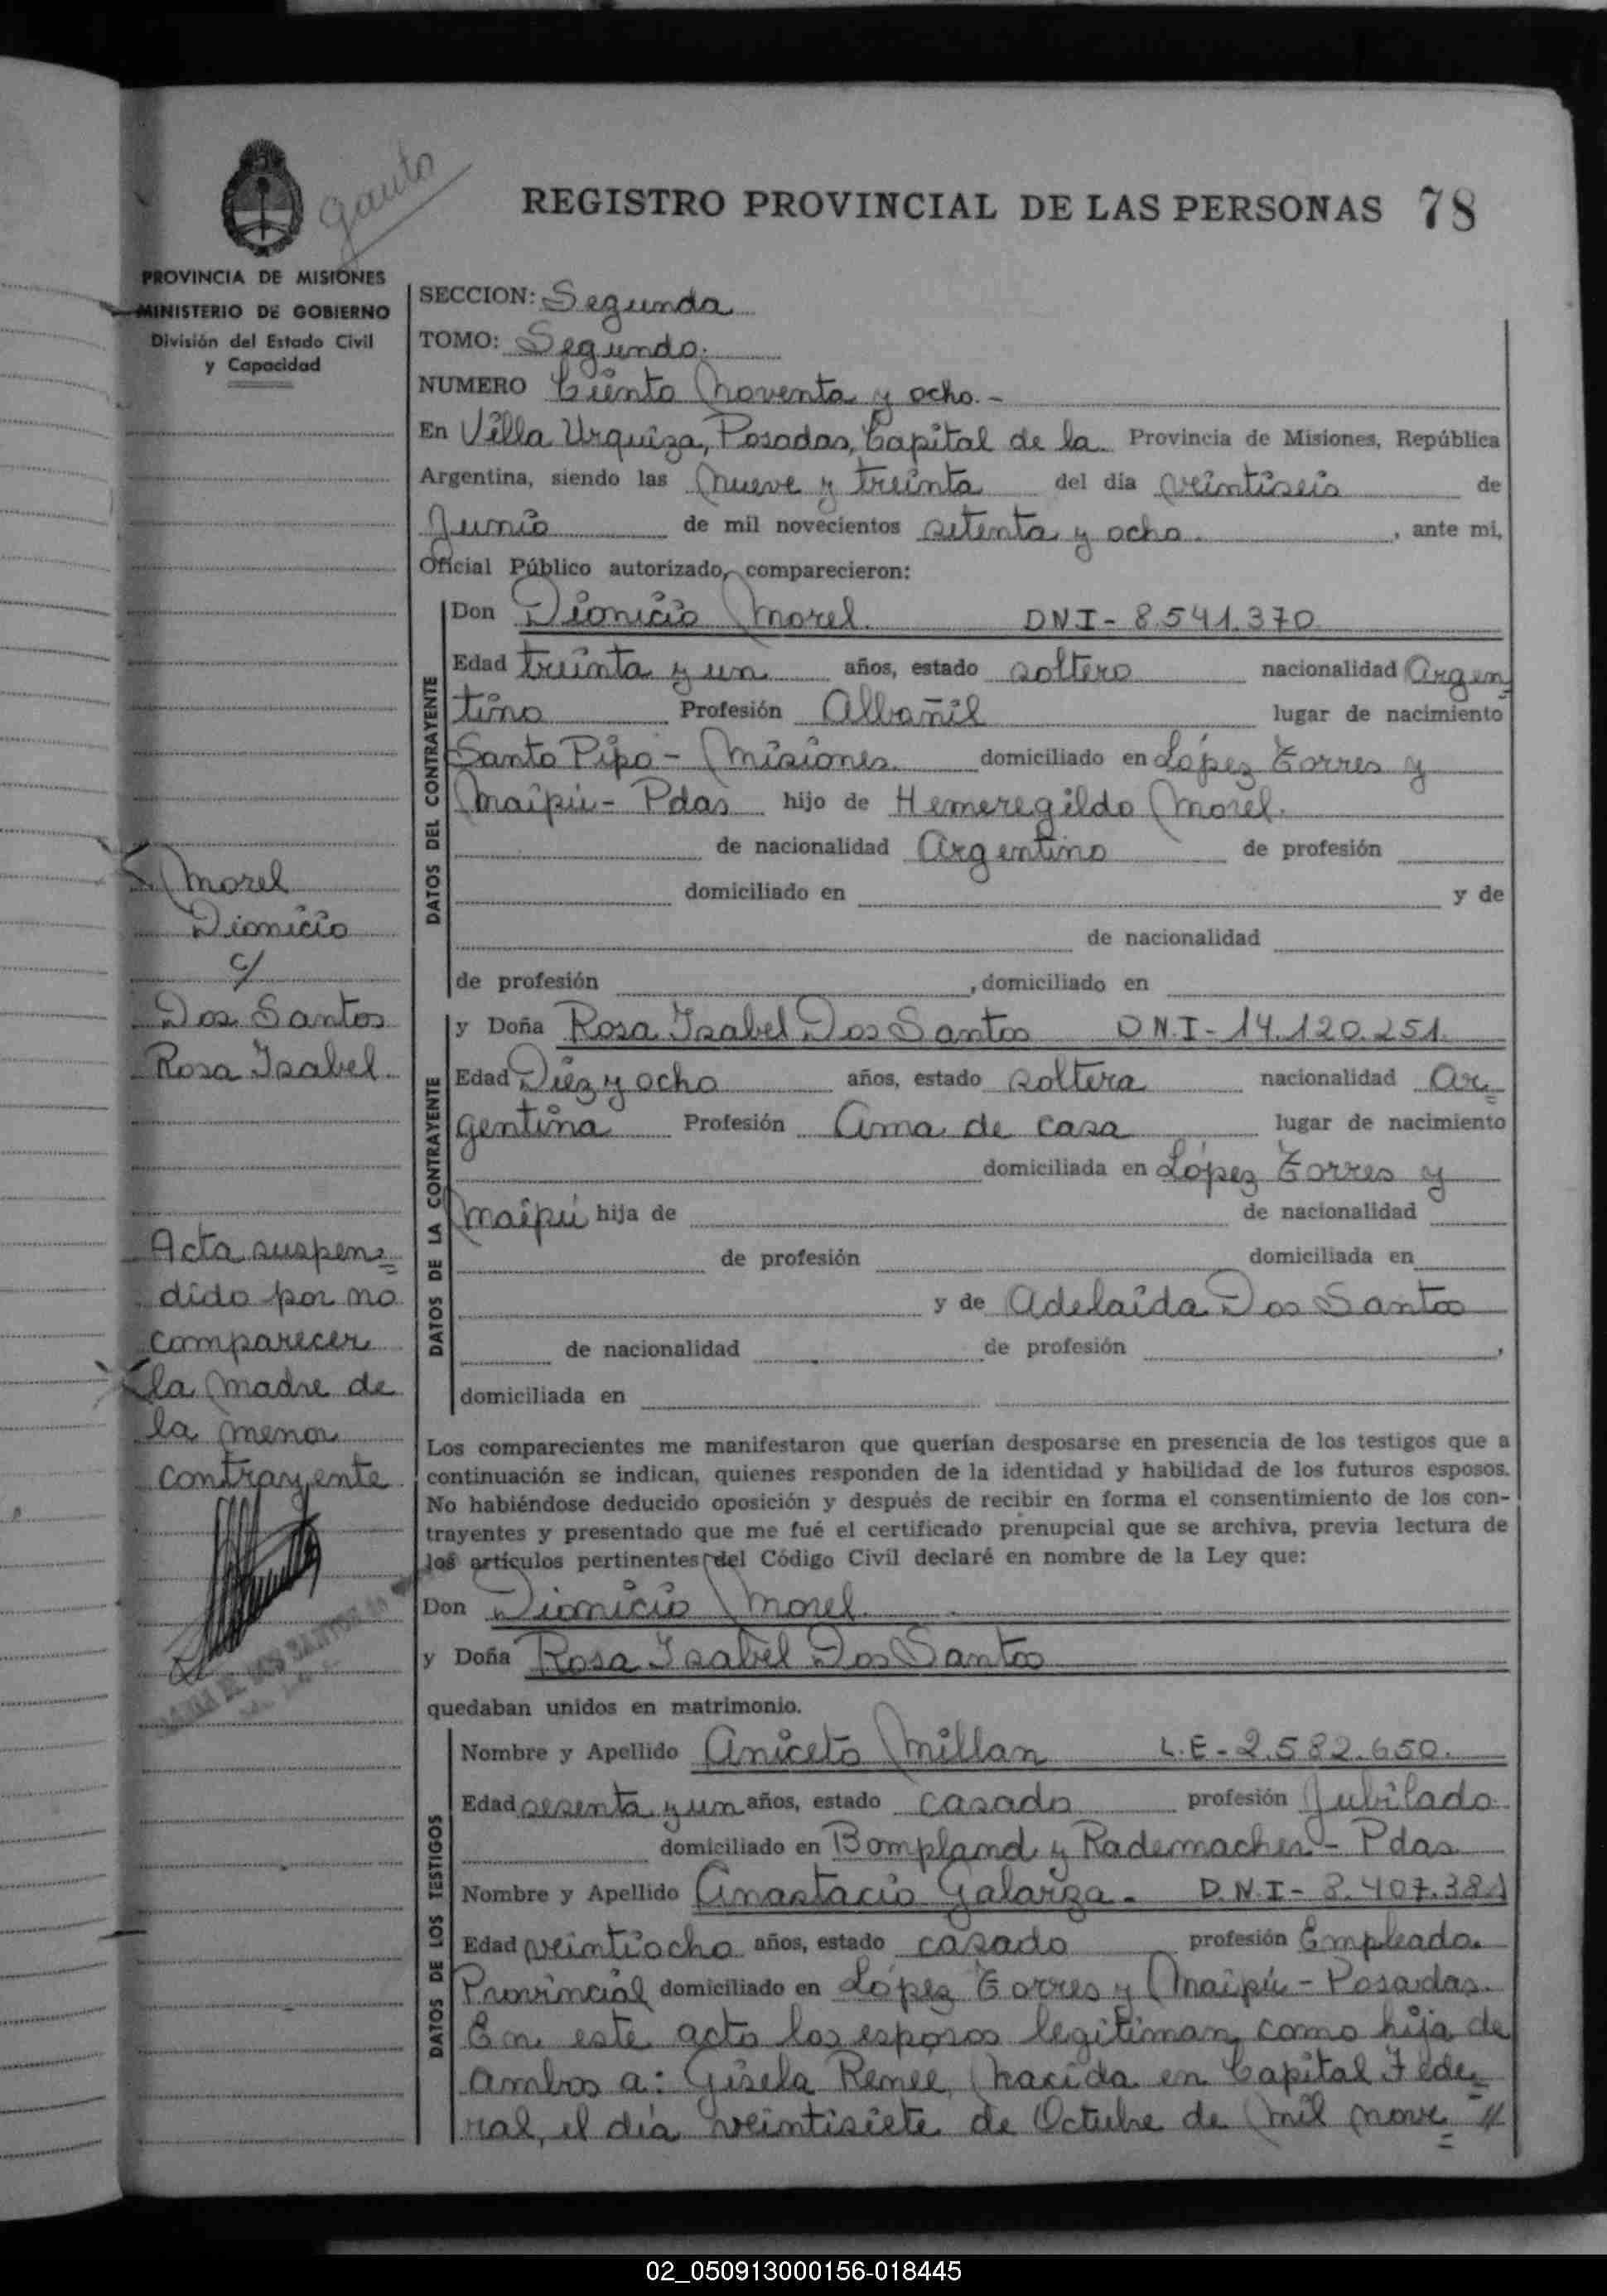 Gauto
REGISTRO PROVINCIAL DE LAS PERSONAS 78
PROVINCIA DE MISIONES
MINISTERIO DE GOBIERNO
División del Estado Civil
y Capacidad
SECCION: Segunda
TOMO: Segundo.
NUMERO Ciento Noventa y ocho.-
En Villa Urquiza, Posadas, Capital de la Provincia de Misiones, República
Argentina, siendo las nueve y treinta del día veintiseis de
Junio de mil novecientos setenta y ocho. , ante mi,
Oficial Público autorizado, comparecieron:
DATOS DEL CONTRAYENTE
Don Dionicio Morel. DNI- 8.541.370
Edad treinta y un años, estado soltero nacionalidad Argen=
tino Profesión Albañil lugar de nacimiento
Santo Pipo - Misiones. domiciliado en López Torres y
Maipú - Pdas hijo de Hemeregildo Morel.
de nacionalidad Argentino de profesión
domiciliado en y de
de nacionalidad
de profesión , domiciliado en
DATOS DE LA CONTRAYENTE
y Doña Rosa Isabel Dos Santos D.N.I- 14.120.251.
Edad Diez y ocho años, estado soltera nacionalidad Ar=
gentina Profesión Ama de casa lugar de nacimiento
domiciliada en López Torres y
Maipú hija de de nacionalidad
de profesión domiciliada en
y de Adelaida Dos Santos
de nacionalidad de profesión ,
domiciliada en
Morel
Dionicio
c/
Dos Santos
Rosa Isabel.
Acta suspen=
dido por no
comparecer
la madre de
la menor
contrayente
Los comparecientes me manifestaron que querían desposarse en presencia de los testigos que a
continuación se indican, quienes responden de la identidad y habilidad de los futuros esposos.
No habiéndose deducido oposición y después de recibir en forma el consentimiento de los con-
trayentes y presentado que me fué el certificado prenupcial que se archiva, previa lectura de
los artículos pertinentes del Código Civil declaré en nombre de la Ley que:
Don Dionicio Morel.
y Doña Rosa Isabel Dos Santos
quedaban unidos en matrimonio.
DATOS DE LOS TESTIGOS
Nombre y Apellido Aniceto Millan L.E-2.582.650.
Edad sesenta y un años, estado casado profesión Jubilado.
domiciliado en Bompland y Rademacher - Pdas
Nombre y Apellido Anastacio Galarza. D.N.I- 8.407.381
Edad veintiocho años, estado casado profesión Empleado.
Provincial domiciliado en López Torres y Maipú - Posadas.
En este acto los esposos legitiman como hija de
ambos a: Gisela Renee, nacida en Capital Fede=
ral, el día veintisiete de Octubre de mil nove=//
02_050913000156-018445